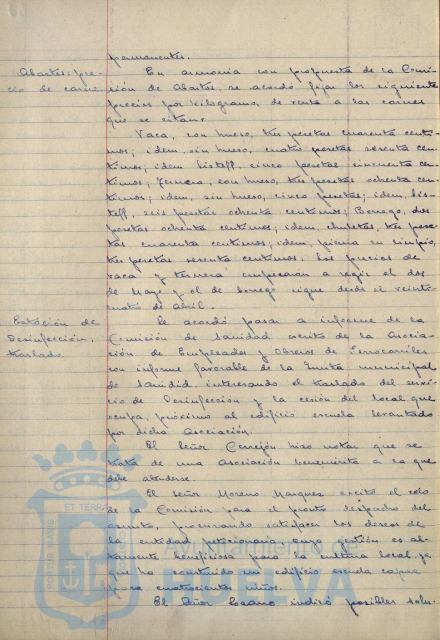 permanentes.
Abastos: pre-
cio de carne
En armonía con propuesta de la Comi-
sión de Abastos, se acordó fijar los siguiente
precios por kilogramo, de venta a las carnes
que se citan:
Vaca, con hueso, tres pesetas cuarenta centi-
mos; idem sin hueso, cuatro pesetas sesenta cen-
timos; idem bisteff, cinco pesetas cincuenta cen-
timos; Ternera, con hueso, tres pesetas ochenta cen-
timos; idem, sin hueso, cinco pesetas; idem, bis-
teff, seis pesetas ochenta centimos; Borrego, dos
pesetas ochenta centimos; idem, chuletas, tres pese-
tas cuarenta centimos; idem, pierna en limpio,
tres pesetas sesenta centimos. Los precios de
vaca y ternera empezaran a regir el dos
de Mayo y el de borrego rigue desde el veinti-
cuatro de abril.
Estación de
Desinfección,
traslado.
Se acordó pasar a informe de la
Comisión de Sanidad escrito de la Asocia-
ción de Empleados y Obreros de Ferrocarriles
con informe favorable de la Junta municipal
de Sanidad, interesando el traslado del servi-
cio de Desinfección y la cesión del local que
ocupa, próximo al edificio escuela levantado
por dicha Asociación.
El Señor Cerrejón hizo notar que se
trata de una Asociación benemérita a la que
debe atenderse.
El Señor Moreno Marquez excitó el celo
de la Comisión para el pronto despacho del
asunto, procurando satisfacer los deseos de
la entidad peticionaria, cuya gestión es al-
tamente beneficiosa para la cultura local, ya
que ha construido un edificio escuela capaz
para cuatrocientos niños.
El Señor Lozano indicó posibles solu-
PORTUS MARIS ET TERRAE
HUELVA